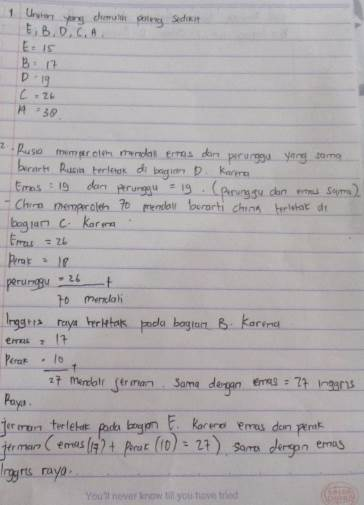 1. Urutan yang dimulai paling sedikit
E, B, D, C, A.
E = 15
B = 17
D = 19
C = 26
A = 38
2. Rusia memperoleh mendali emas dan perunggu yang sama
berarti Russia terletak di bagian D. Karena
Emas = 19 dan perunggu = 19. (perunggu dan emas sama)
- China memperoleh 70 mendali berarti china terletak di
bagian C. Karena
Emas = 26
Perak = 18
perunggu = 26 +
70 mendali
Inggris raya terletak pada bagian B. Karena
emas = 17
Perak = 10 +
27 mendali jerman. Sama dengan emas = 27 inggris
Raya.
jerman terletak pada bagian E. Karena emas dan perak
jerman (emas (17) + Perak (10) = 27) sama dengan emas
Inggris raya.
You'll never know till you have tried